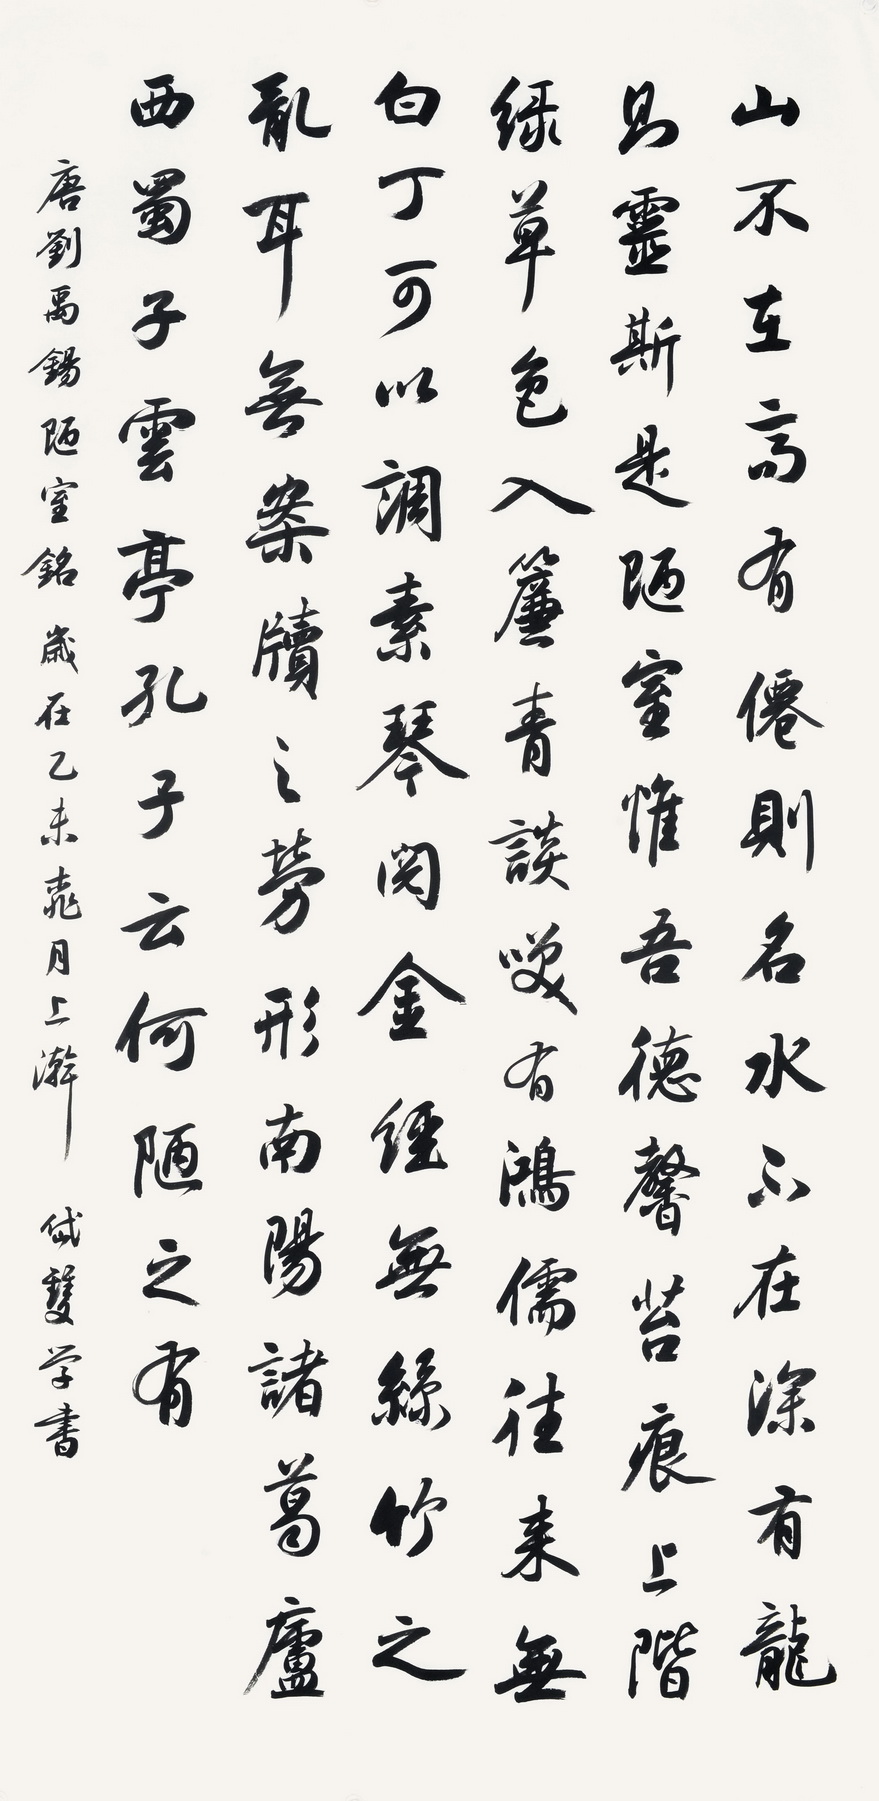 山不在高有僊則名水不在深有龍
則靈斯是陋室惟吾德馨苔痕上階
緑草色入簾青談笑有鴻儒往来無
白丁可以調素琴閱金經無絲竹之
亂耳無案牘之勞形南陽諸葛廬
西蜀子雲亭孔子云何陋之有
唐劉禹錫陋室銘歲在乙未桃月上澣 岱雙学書